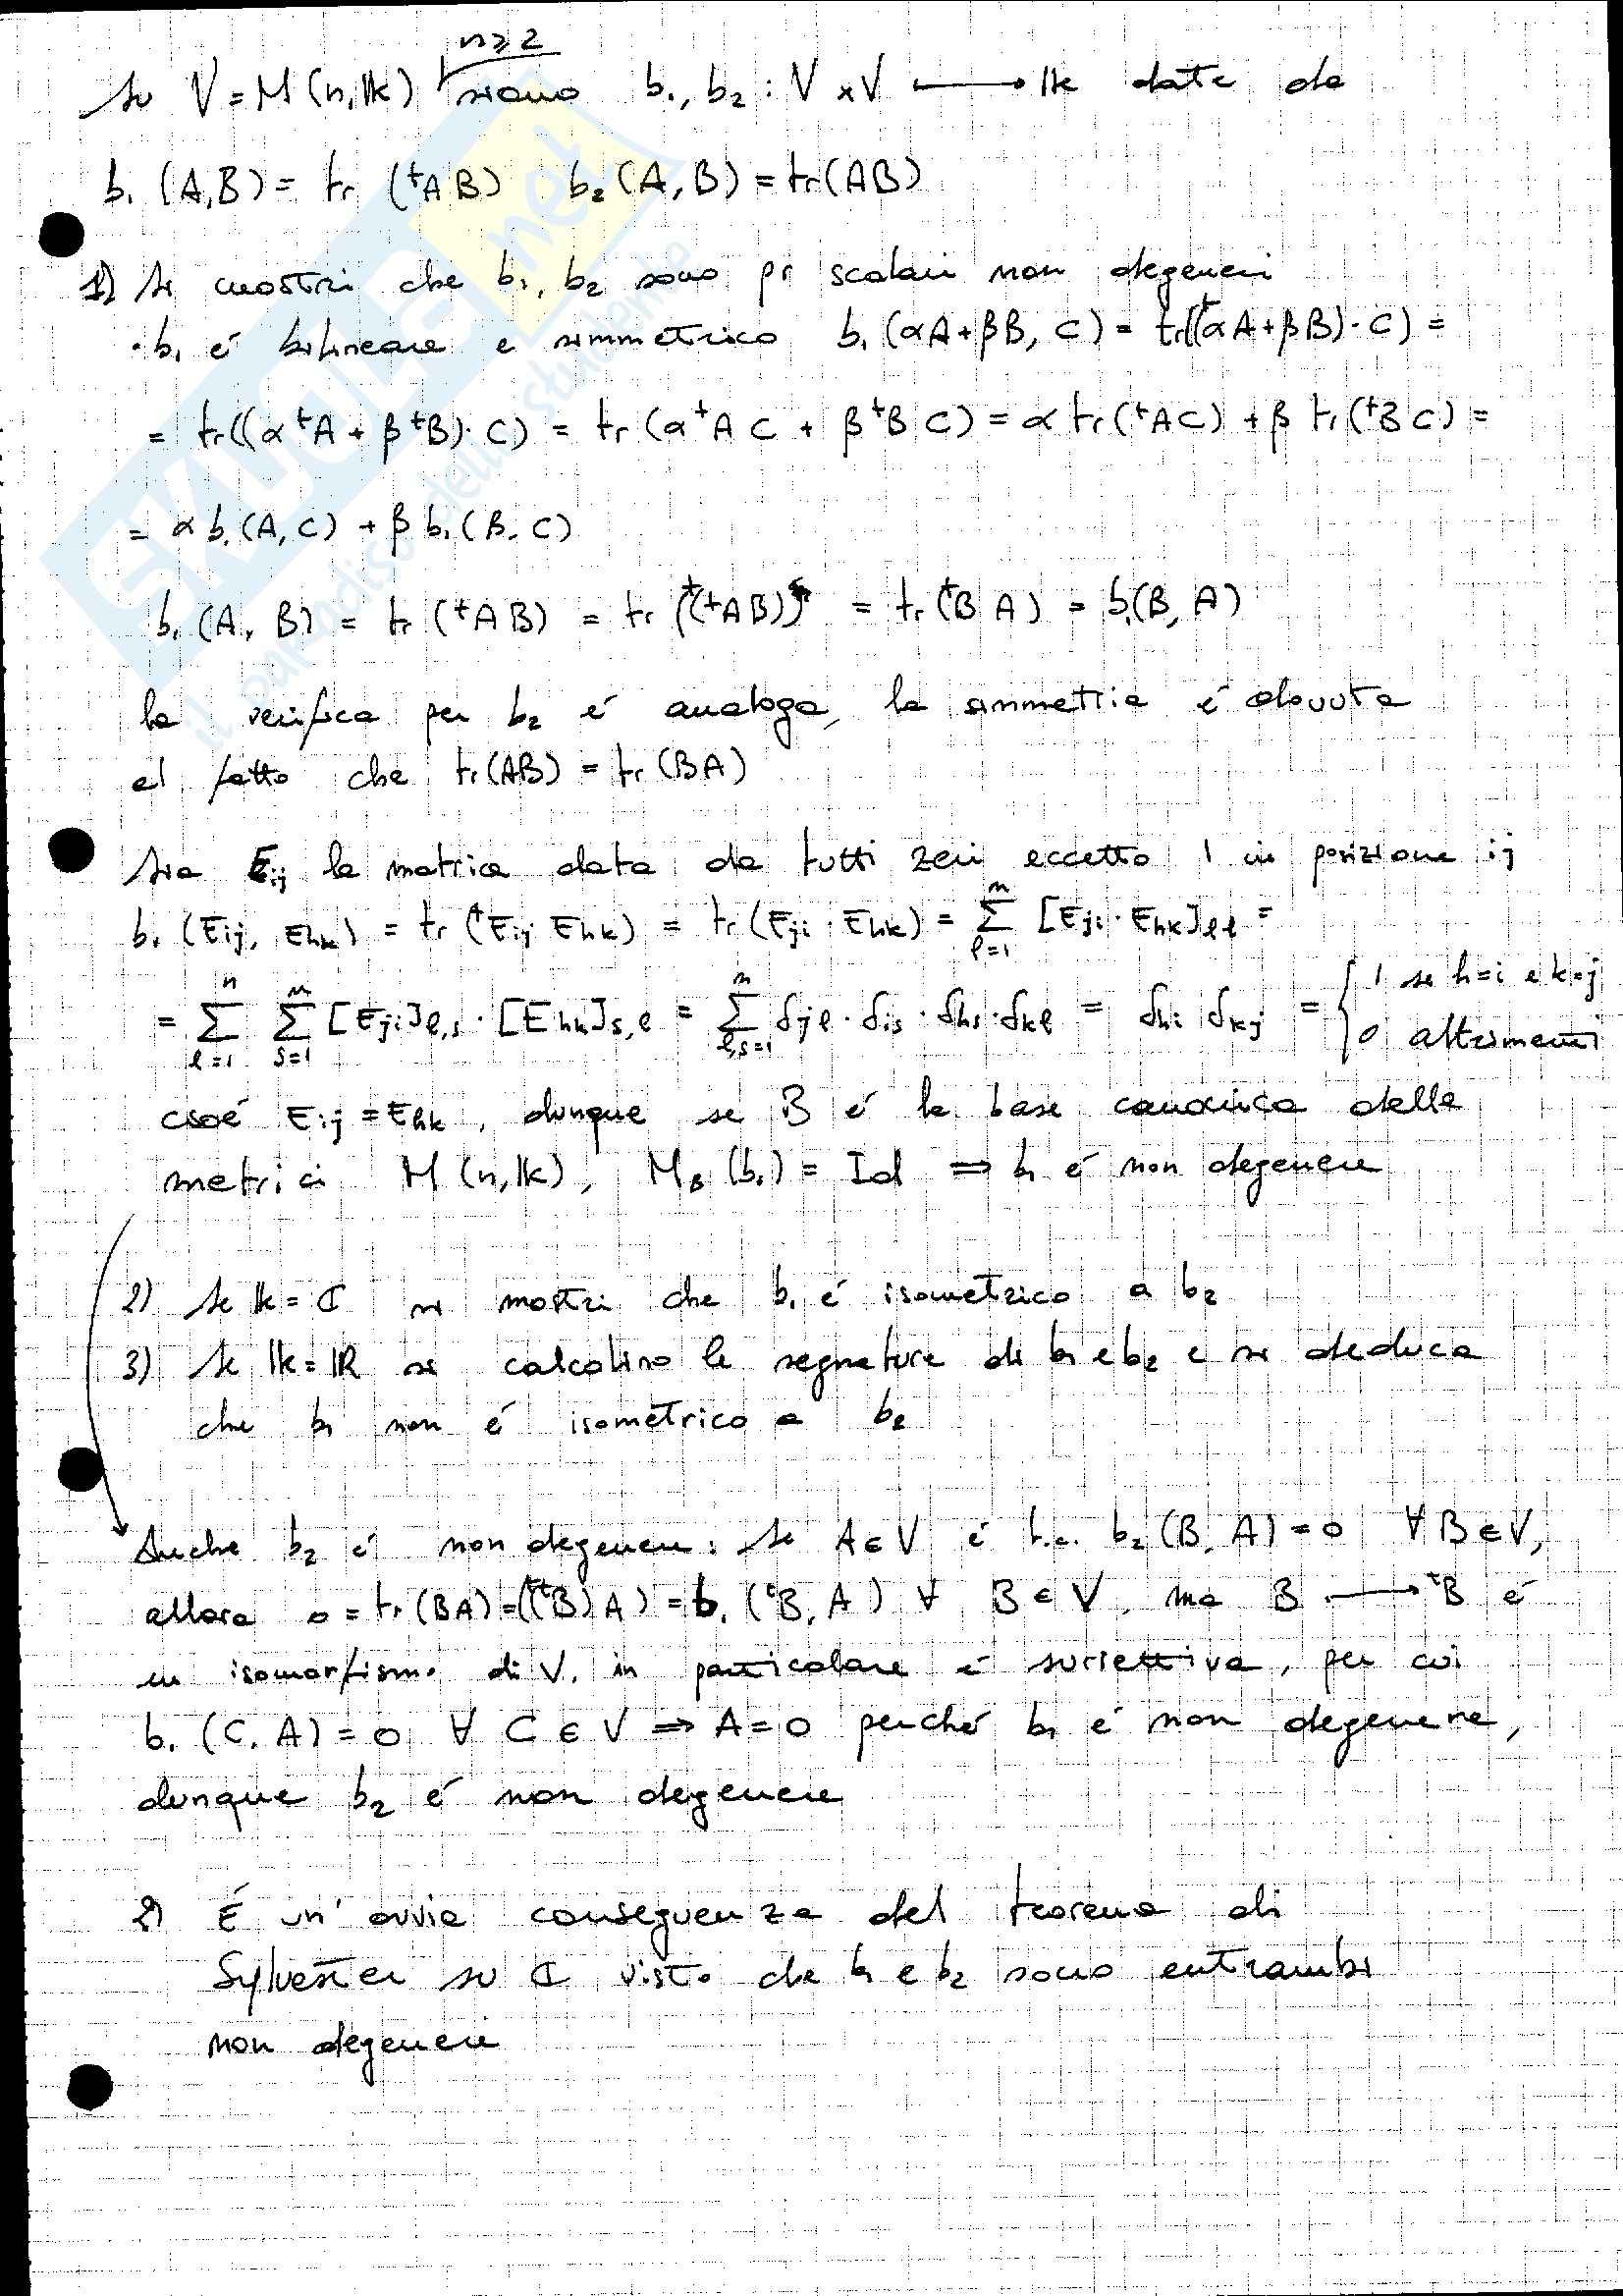 n≥2
Su V = M(n,𝕂) siano b₁, b₂ : V × V ⟶ 𝕂 date da
b₁(A,B) = tr(ᵗAB) b₂(A,B) = tr(AB)
1) Si mostri che b₁, b₂ sono pr scalari non degeneri
· b₁ é bilineare e simmetrico b₁(αA+βB, C) = tr(ᵗ(αA+βB)·C) =
= tr((αᵗA + βᵗB)·C) = tr(αᵗAC + βᵗBC) = α tr(ᵗAC) + β tr(ᵗBC) =
= α b₁(A,C) + β b₁(B,C)
b₁(A,B) = tr(ᵗAB) = tr(ᵗ(ᵗAB)) = tr(ᵗBA) = b₁(B,A)
la verifica per b₂ é analoga, la simmetria é dovuta
al fatto che tr(AB) = tr(BA)
Sia Eij la matrice data da tutti zeri eccetto 1 in posizione ij
b₁(Eij, Ehk) = tr(ᵗEij Ehk) = tr(Eji · Ehk) = Σ_{l=1}^{n} [Eji · Ehk]ll =
= Σ_{l=1}^{n} Σ_{s=1}^{n} [Eji]l,s · [Ehk]s,l = Σ_{l,s=1}^{n} δjl · δis · δhs · δkl = δhi δkj = { 1 se h=i e k=j
0 altrimenti
cioé Eij = Ehk, dunque se B é la base canonica delle
matrici M(n,𝕂), M_B(b₁) = Id ⇒ b₁ é non degenere
2) Se 𝕂 = ℂ si mostri che b₁ é isometrico a b₂
3) Se 𝕂 = ℝ si calcolino le segnature di b₁ e b₂ e si deduca
che b₁ non é isometrico a b₂
Anche b₂ é non degenere: Se A ∈ V é t.c. b₂(B,A) = 0 ∀ B ∈ V,
allora 0 = tr(BA) = (ᵗ(ᵗB)A) = b₁(ᵗB,A) ∀ B ∈ V, ma B ⟶ ᵗB é
un isomorfismo di V, in particolare é surrettiva, per cui
b₁(C,A) = 0 ∀ C ∈ V ⇒ A = 0 perché b₁ é non degenere,
dunque b₂ é non degenere
2) É un' ovvia conseguenza del teorema di
Sylvester su ℂ visto che b₁ e b₂ sono entrambi
non degenere